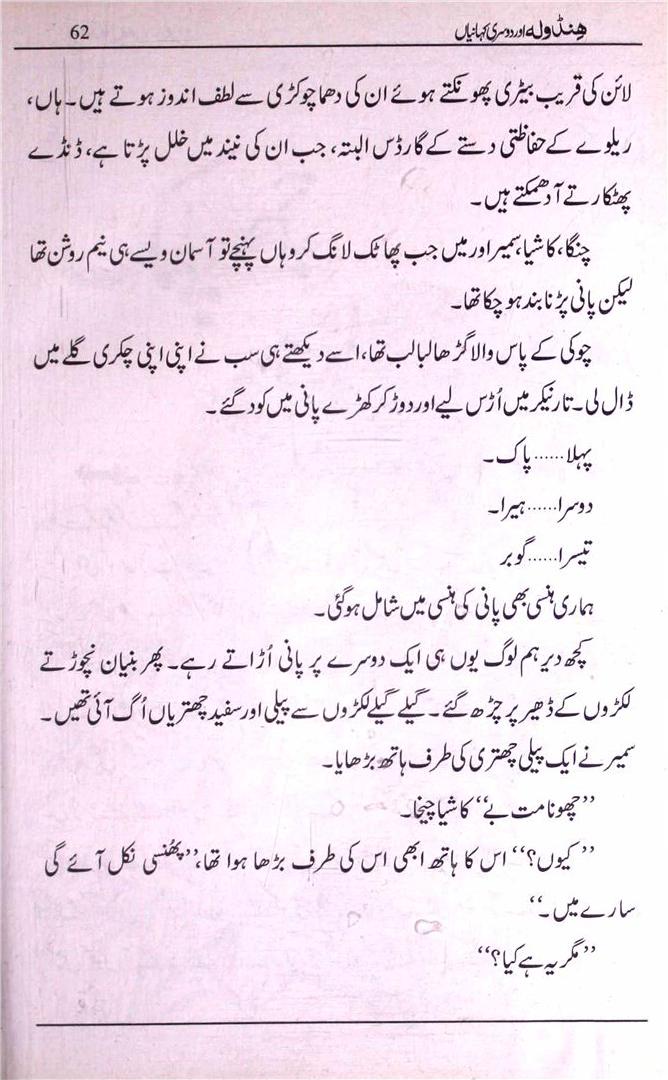 ہنڈولہ اور دوسری کہانیاں 62
لائن کی قریب بیٹری پھونکتے ہوئے ان کی دھما چوکڑی سے لطف اندوز ہوتے ہیں۔ ہاں،
ریلوے کے حفاظتی دستے کے گارڈس البتہ، جب ان کی نیند میں خلل پڑتا ہے، ڈنڈے
پھٹکارتے آدھمکتے ہیں۔
چنگا، کاشیا، سمیر اور میں جب پھاٹک لانگ کر وہاں پہنچے تو آسمان ویسے ہی نیم روشن تھا
لیکن پانی پڑنا بند ہو چکا تھا۔
چوکی کے پاس والا گڑھا لبالب تھا، اسے دیکھتے ہی سب نے اپنی اپنی چکری گلے میں
ڈال لی۔ تار نیکر میں اُڑس لیے اور دوڑ کر کھڑے پانی میں کود گئے۔
پہلا...... پاک۔
دوسرا...... ہیرا۔
تیسرا...... گوبر
ہماری ہنسی بھی پانی کی ہنسی میں شامل ہو گئی۔
کچھ دیر ہم لوگ یوں ہی ایک دوسرے پر پانی اُڑاتے رہے۔ پھر بنیان نچوڑتے
لکڑوں کے ڈھیر پر چڑھ گئے۔ گیلے گیلے لکڑوں سے پیلی اور سفید چھتریاں اُگ آئی تھیں۔
سمیر نے ایک پیلی چھتری کی طرف ہاتھ بڑھایا۔
’’چھونا مت بے‘‘ کاشیا چیخا۔
’’کیوں؟‘‘ اس کا ہاتھ ابھی اس کی طرف بڑھا ہوا تھا، ’’پھُنسی نکل آئے گی
سارے میں۔‘‘
’’مگر یہ ہے کیا؟‘‘